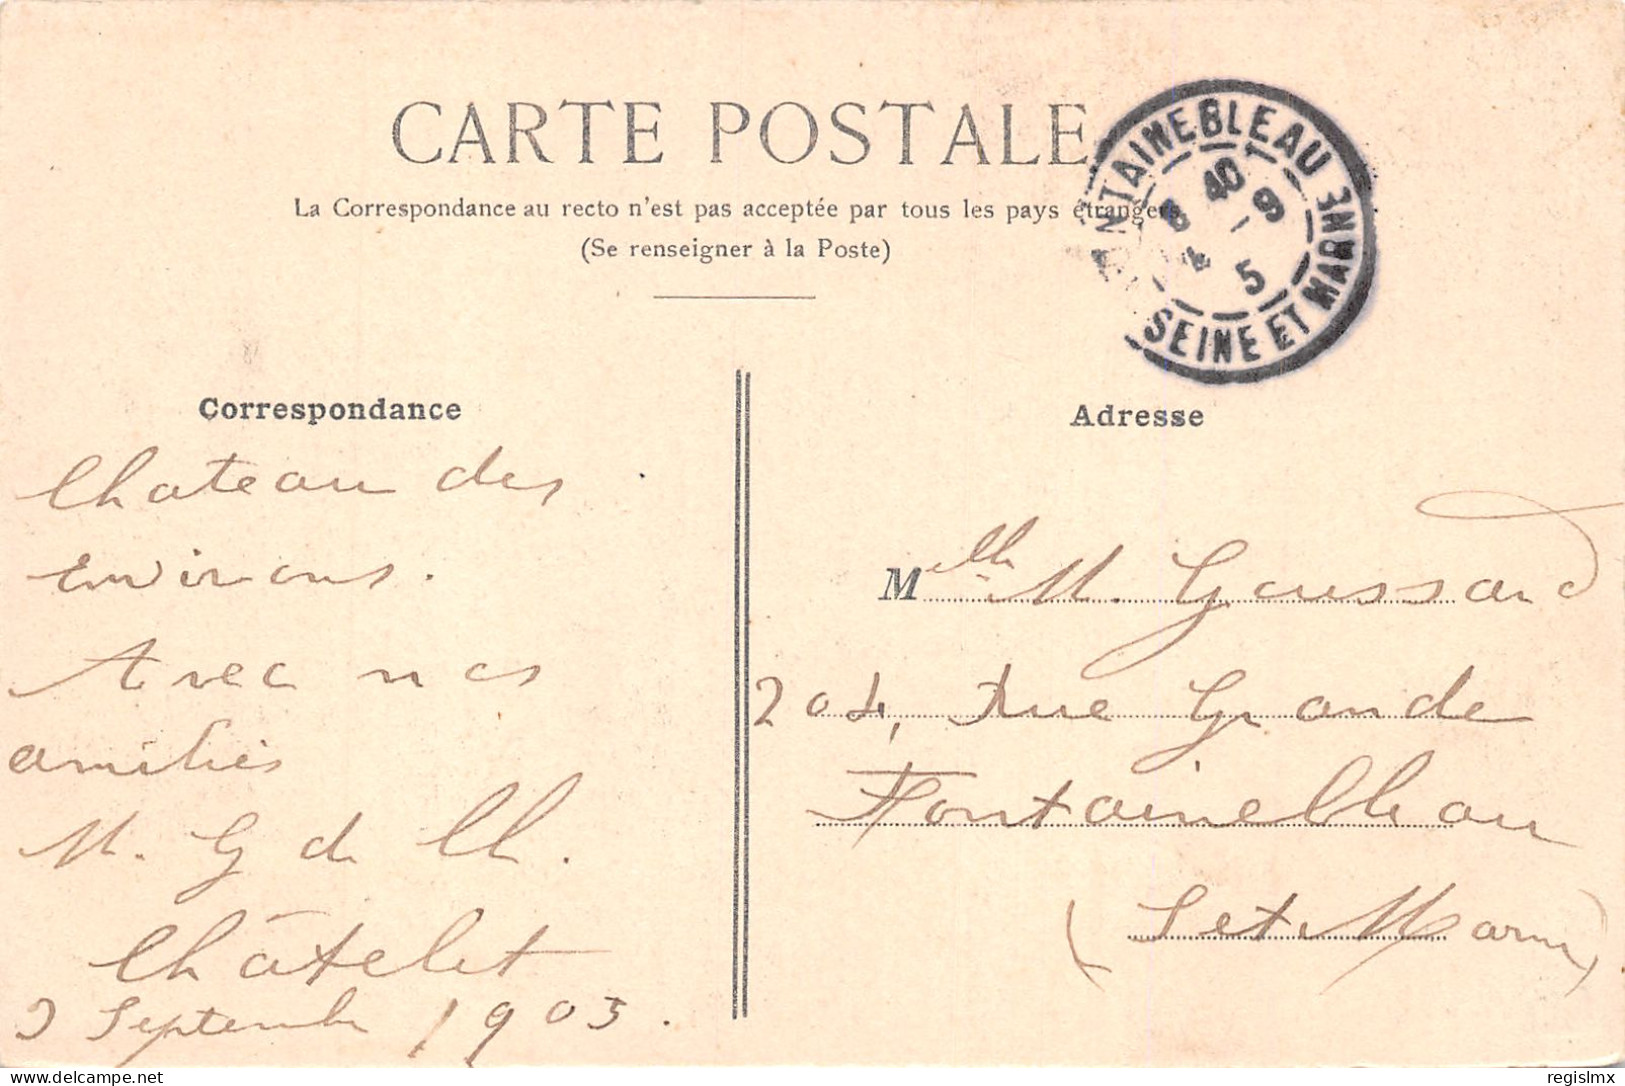 CARTE POSTALE
La Correspondance au recto n'est pas acceptée par tous les pays étrangers
(Se renseigner à la Poste)
NTAINEBLEAU
SEINE ET MARNE
40 9
5
Correspondance
Chateau des
environs.
Avec nos
amitiés
M. G de Ch.
Châtelet
3 Septembre 1905.
Adresse
Melle M. Goussard
204, Rue Grande
Fontainebleau
(S et Marne)
regislmx